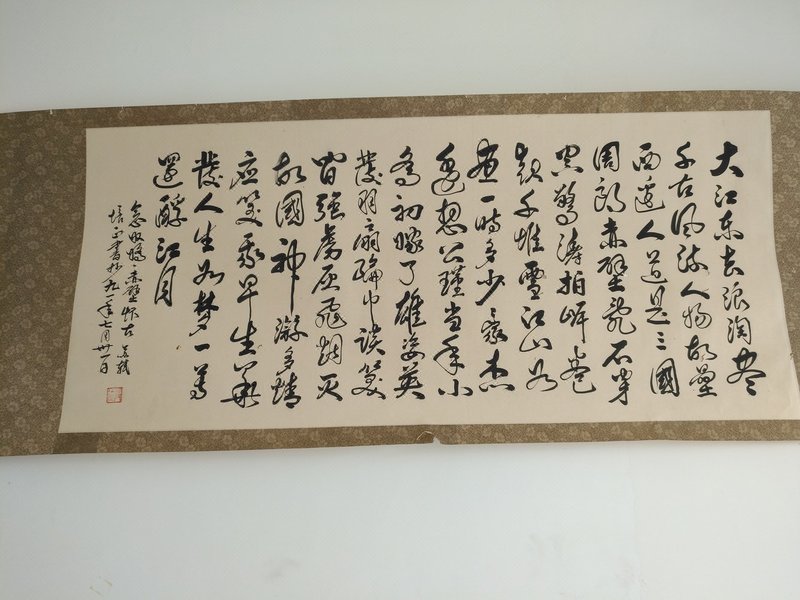 大江东去浪淘尽
千古风流人物故垒
西边人道是三國
周郎赤壁乱石穿
空驚涛拍岸卷
起千堆雪江山如
画一时多少豪杰
遥想公瑾当年小
乔初嫁了雄姿英
發羽扇纶巾谈笑
间强虏灰飞烟灭
故國神游多情
应笑我早生华
發人生如梦一尊
還酹江月
念奴娇赤壁怀古 苏轼
培正書於九一年七月卅一日